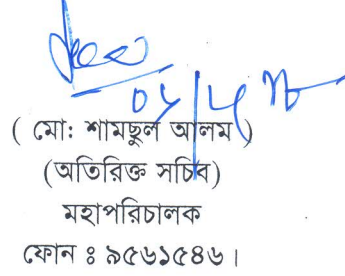 ( মো: শামছুল আলম )
(অতিরিক্ত সচিব)
মহাপরিচালক
ফোন ঃ ৯৫৬১৫৪৬।